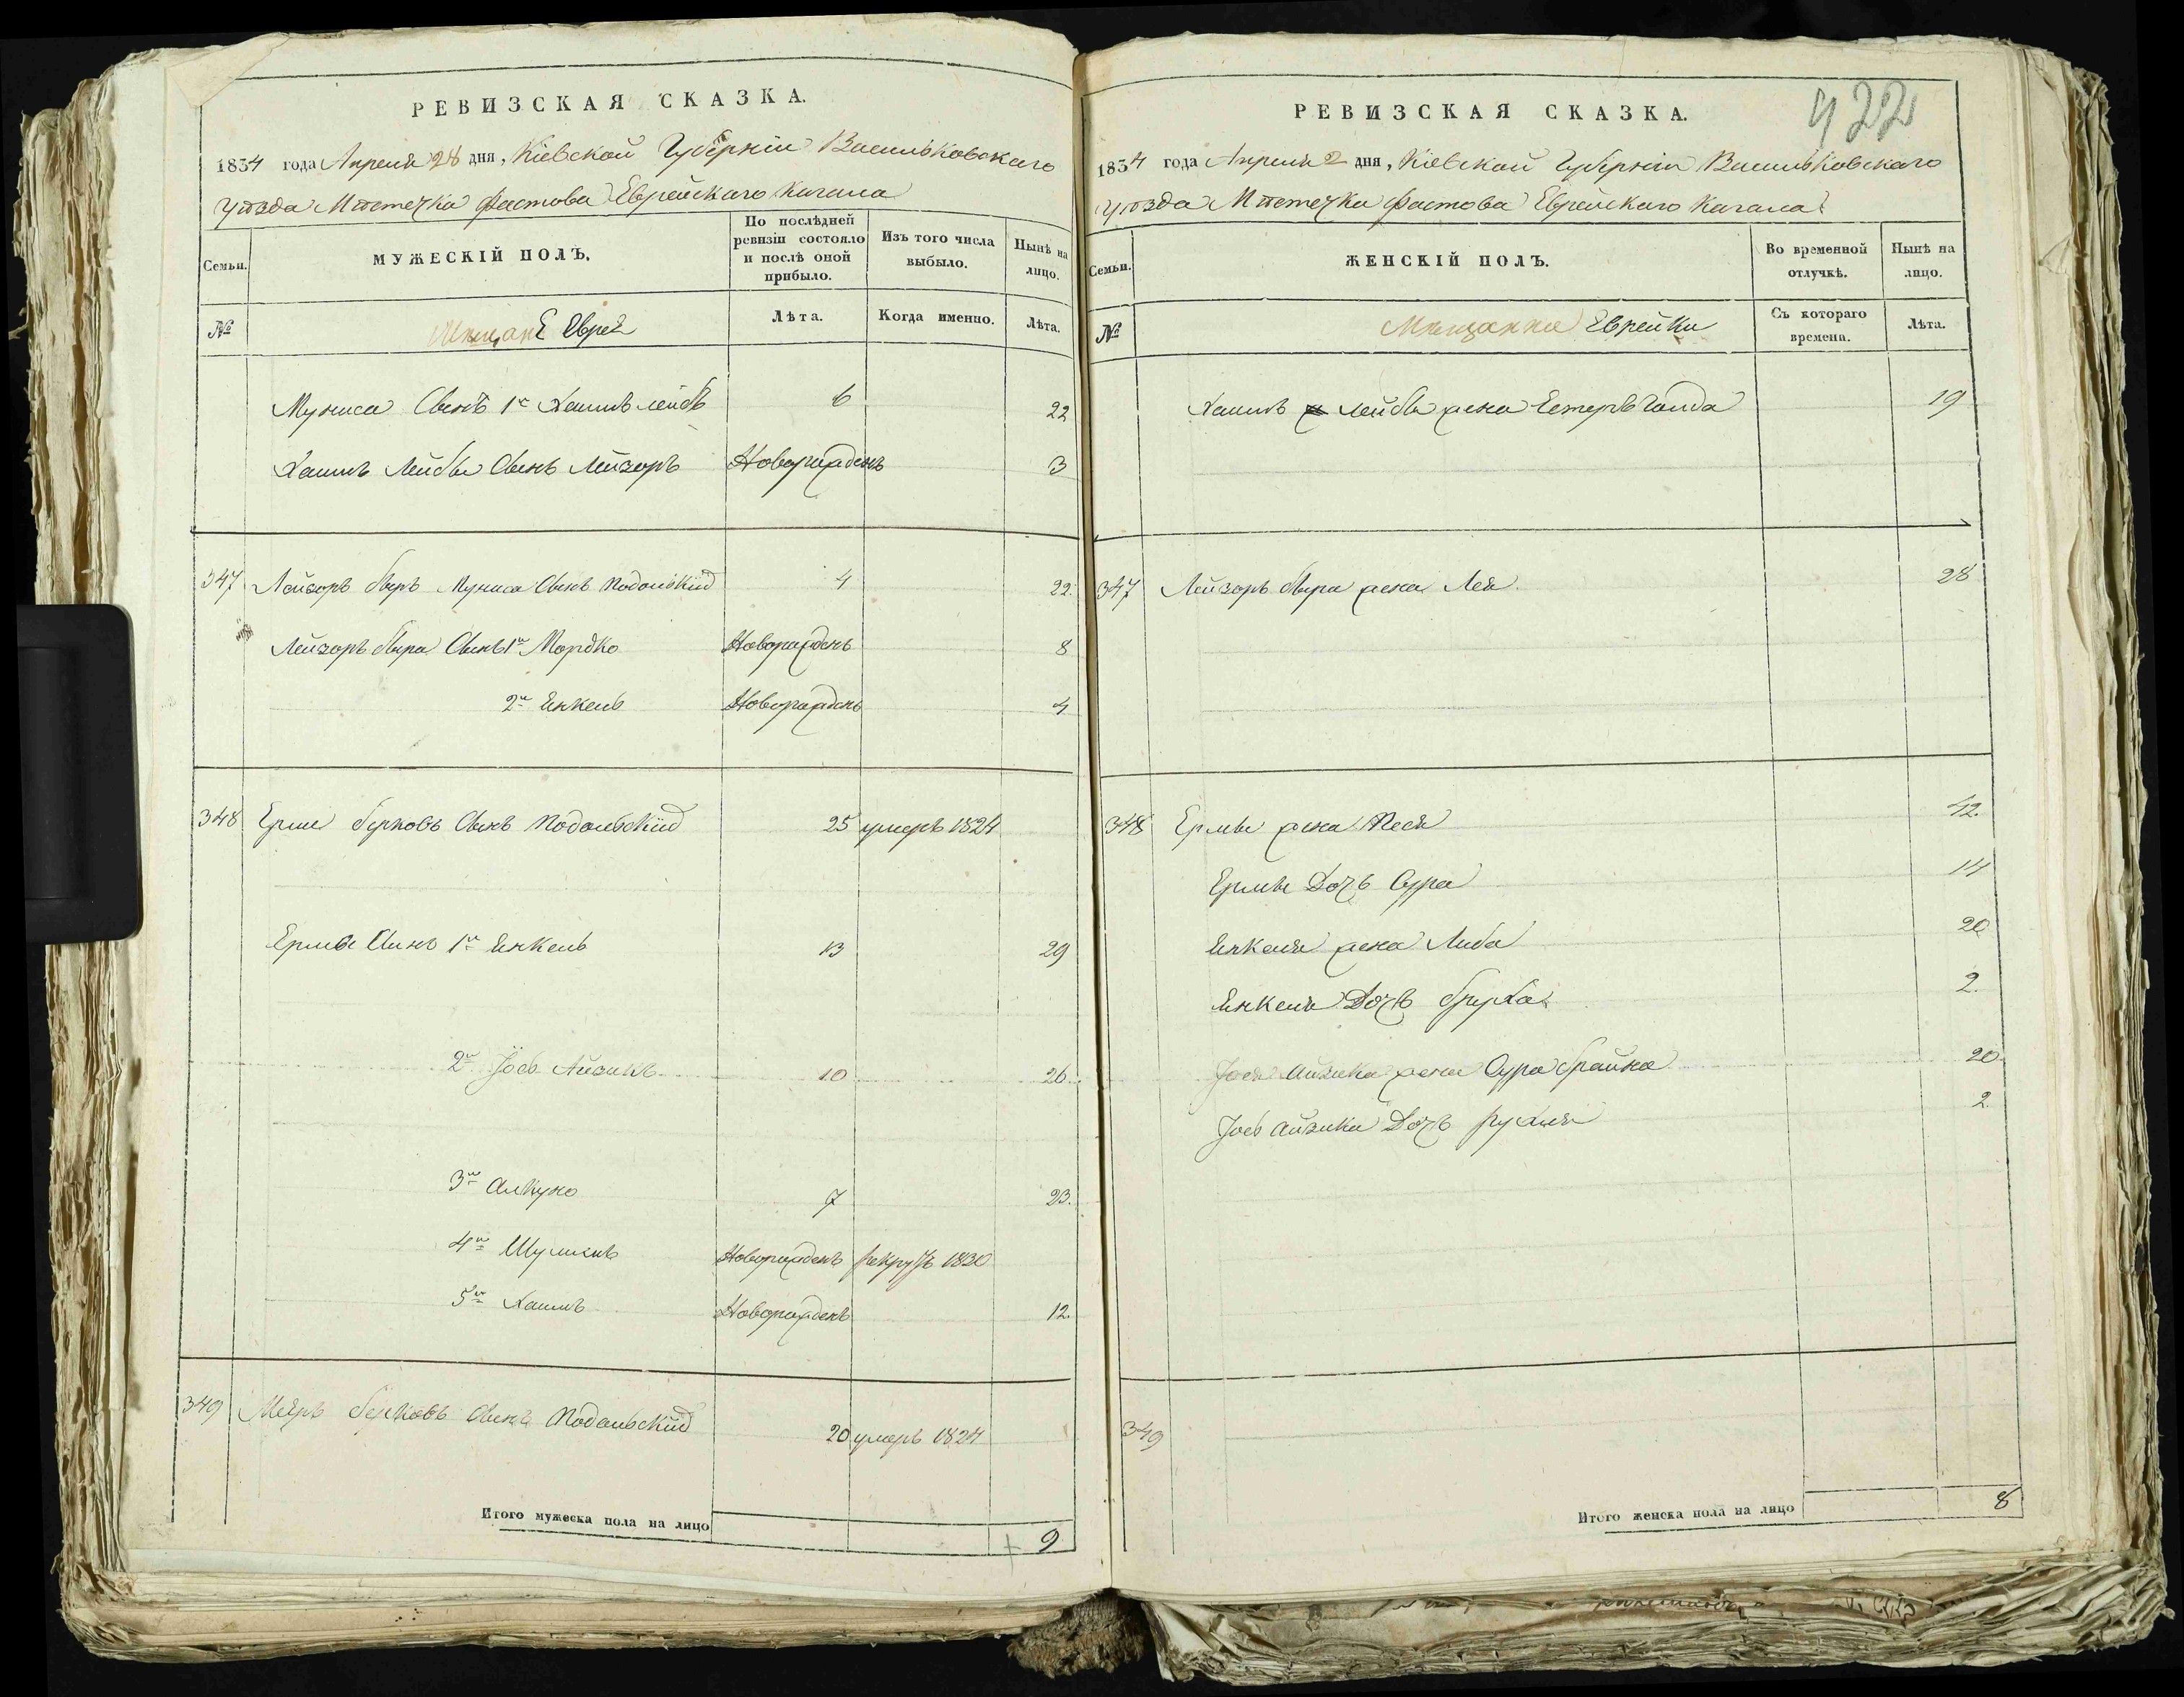 РЕВИЗСКАЯ СКАЗКА.
1834 года Апреля 28 дня, Кіевской Губерніи Васильковскаго
уѣзда Мѣстечка Фастова Еврейскаго Кагала
Семьи.
МУЖЕСКІЙ ПОЛЪ.
По послѣдней ревизіи состояло и послѣ оной прибыло.
Изъ того числа выбыло.
Нынѣ на лицо.
№
Мещане Евреи
Лѣта.
Когда именно.
Лѣта.
Муниса Сынъ 1й Хаимъ лейбъ 6 22
Хаимъ Лейбы Сынъ Лейзоръ Новорожденъ 3
347 Лейзоръ беръ Муниса Сынъ Подольскій 4 22.
Лейзоръ бера Сынъ 1й Мордко Новорожденъ 8
2й Енкель Новорожденъ 4
348 Ерше берковъ Сынъ Подольскій 25 умеръ 1824
Ершы Сынъ 1й Енкель 13 29
2й Іось Айзикъ 10 26.
3й Алкуно 7 23.
4й Шулимъ Новорожденъ рекрутъ 1830
5й Хаимъ Новорожденъ 12.
349 Меяръ берковъ Сынъ Подольскій 20 умеръ 1824
Итого мужеска пола на лицо 9
РЕВИЗСКАЯ СКАЗКА.
422
1834 года Апреля 2 дня, Кіевской Губерніи Васильковскаго
уѣзда Мѣстечка Фастова Еврейскаго Кагала
Семьи.
ЖЕНСКІЙ ПОЛЪ.
Во временной отлучкѣ.
Нынѣ на лицо.
№
Мещанки Еврейки
Съ котораго времени.
Лѣта.
Хаимъ Лейбы жена Естеръ Голда 19
347 Лейзоръ бера жена Лея 28
348 Ершы жена Песя 42.
Ершы Дочь Сура 14
Енкеля жена Либа 20
Енкеля Дочь бруха 2.
Іося Айзика жена Сура брайна 20.
Іось айзика Дочь рухля 2.
349
Итого женска пола на лицо 8